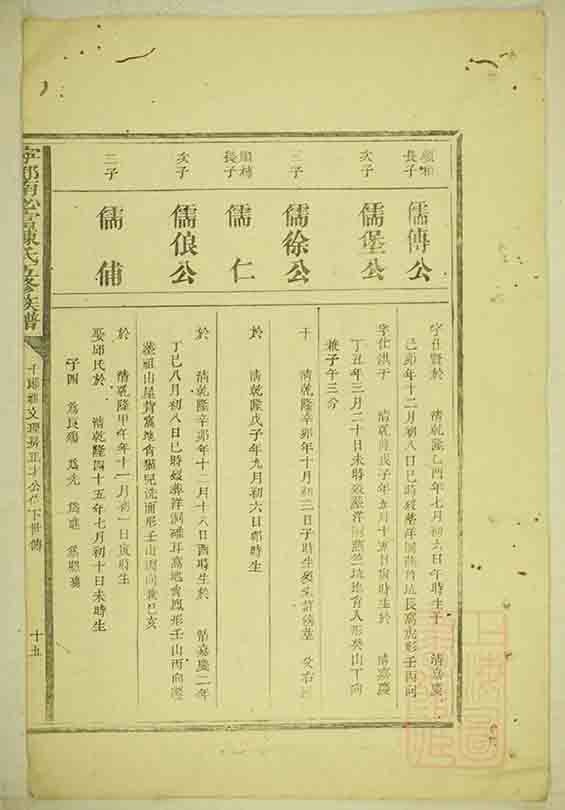 長子
儒傳公
字仕賢於 清乾隆乙酉年七月初六日午時生于 清嘉慶
己卯年十二月初八日巳時歿葬洋洞 坑長窩虎形壬丙向
次子
儒堡公
字仕洪于 清乾隆戊子年五月十五日寅時生於 清嘉慶
丁丑年三月二十日未時歿葬洋洞 坑坑地有人形癸山丁向
兼子午三分
三子
儒徐公
于 清乾隆辛卯年十月初三日子時生
長子
儒仁
於 清乾隆戊子年九月初六日卯時生
次子
儒俍公
於 清乾隆辛卯年十二月十八日酉時生於 清嘉慶二年
丁巳八月初八日巳時歿葬洋洞 窩地有鳳形壬山丙向
葬祖山屋背窩地有猫兒洗面形壬山丙向兼巳亥
三子
儒俌
於 清乾隆甲午年十一月初一日寅時生
娶邱氏於 清乾隆四十五年七月初十日未時生
子四 為良 為先 為
陳氏五修族譜
公位下世傳
十五